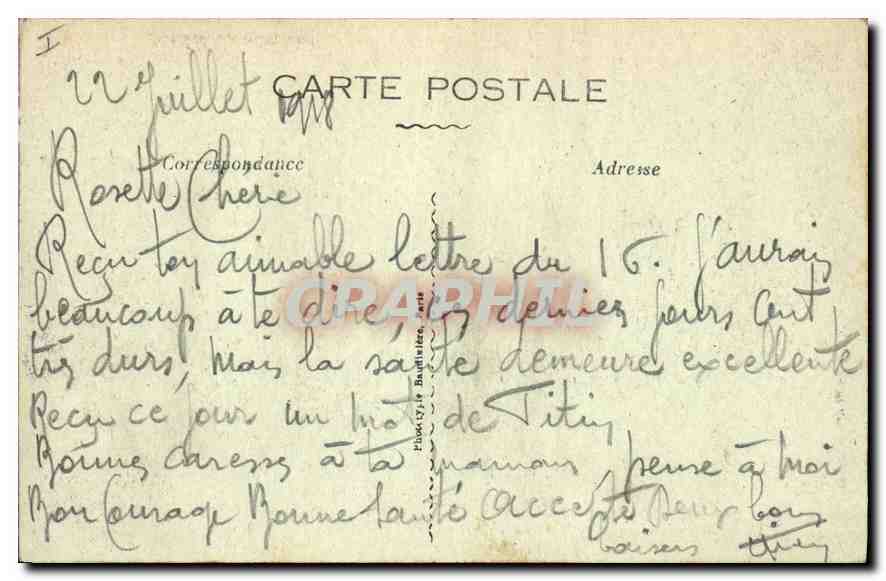 I
22 Juillet 1918
CARTE POSTALE
Correspondance
Adresse
Rosette Chérie
Reçu ton aimable lettre du 16. J'aurais
beaucoup à te dire, ces derniers jours sont
très durs, mais la santé demeure excellente
Reçu ce jour un mot de Titin
Bonnes caresses à ta maman, pense à moi
Bon Courage Bonne Santé Accepte deux bons
baisers
Phototypie Baudinière, Paris
CARAPHIL